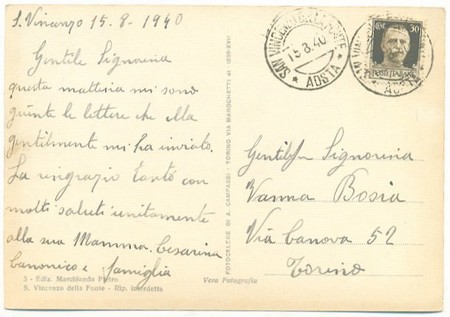 S. Vincenzo 15-8-1940
Gentile Signorina
questa mattina mi sono
giunte le lettere che ella
gentilmente mi ha inviato.
La ringrazio tanto con
molti saluti unitamente
alla sua Mamma. Cesarina
Canonico e famiglia
3 - Ediz. Marchiando Pietro
S. Vincenzo della Fonte - Rip. interdetta
Vera Fotografia
FOTOCELERE DI A. CAMPASSI - TORINO VIA MAROCHETTI 41 1939-XVII
SAN VINCENZO DELLA FONTE
15.8.40
* AOSTA *
30
POSTE ITALIANE
AOSTA
Gentilissima Signorina
Vanna Bosia
Via Canova 52
Torino